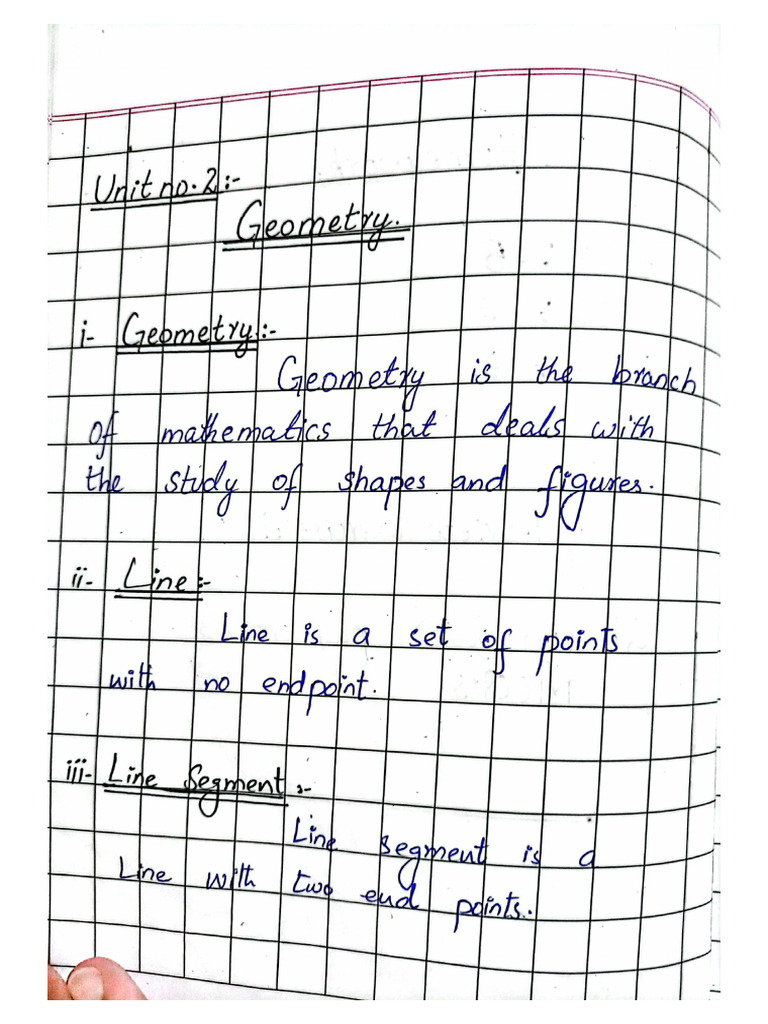 Unit no. 2:-
Geometry.
i- Geometry:-
Geometry is the branch
of mathematics that deals with
the study of shapes and figures.
ii- Line:-
Line is a set of points
with no endpoint.
iii- Line Segment :-
Line segment is a
Line with two end points.